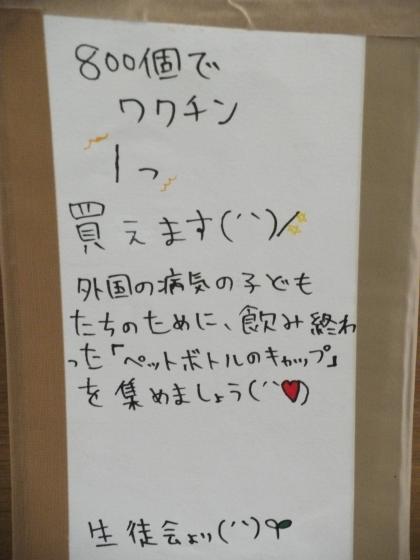 800個で
ワクチン
1つ
買えます(´`)/
外国の病気の子ども
たちのために、飲み終わ
った「ペットボトルのキャップ」
を集めましょう(´`♥)
生徒会より(´`)